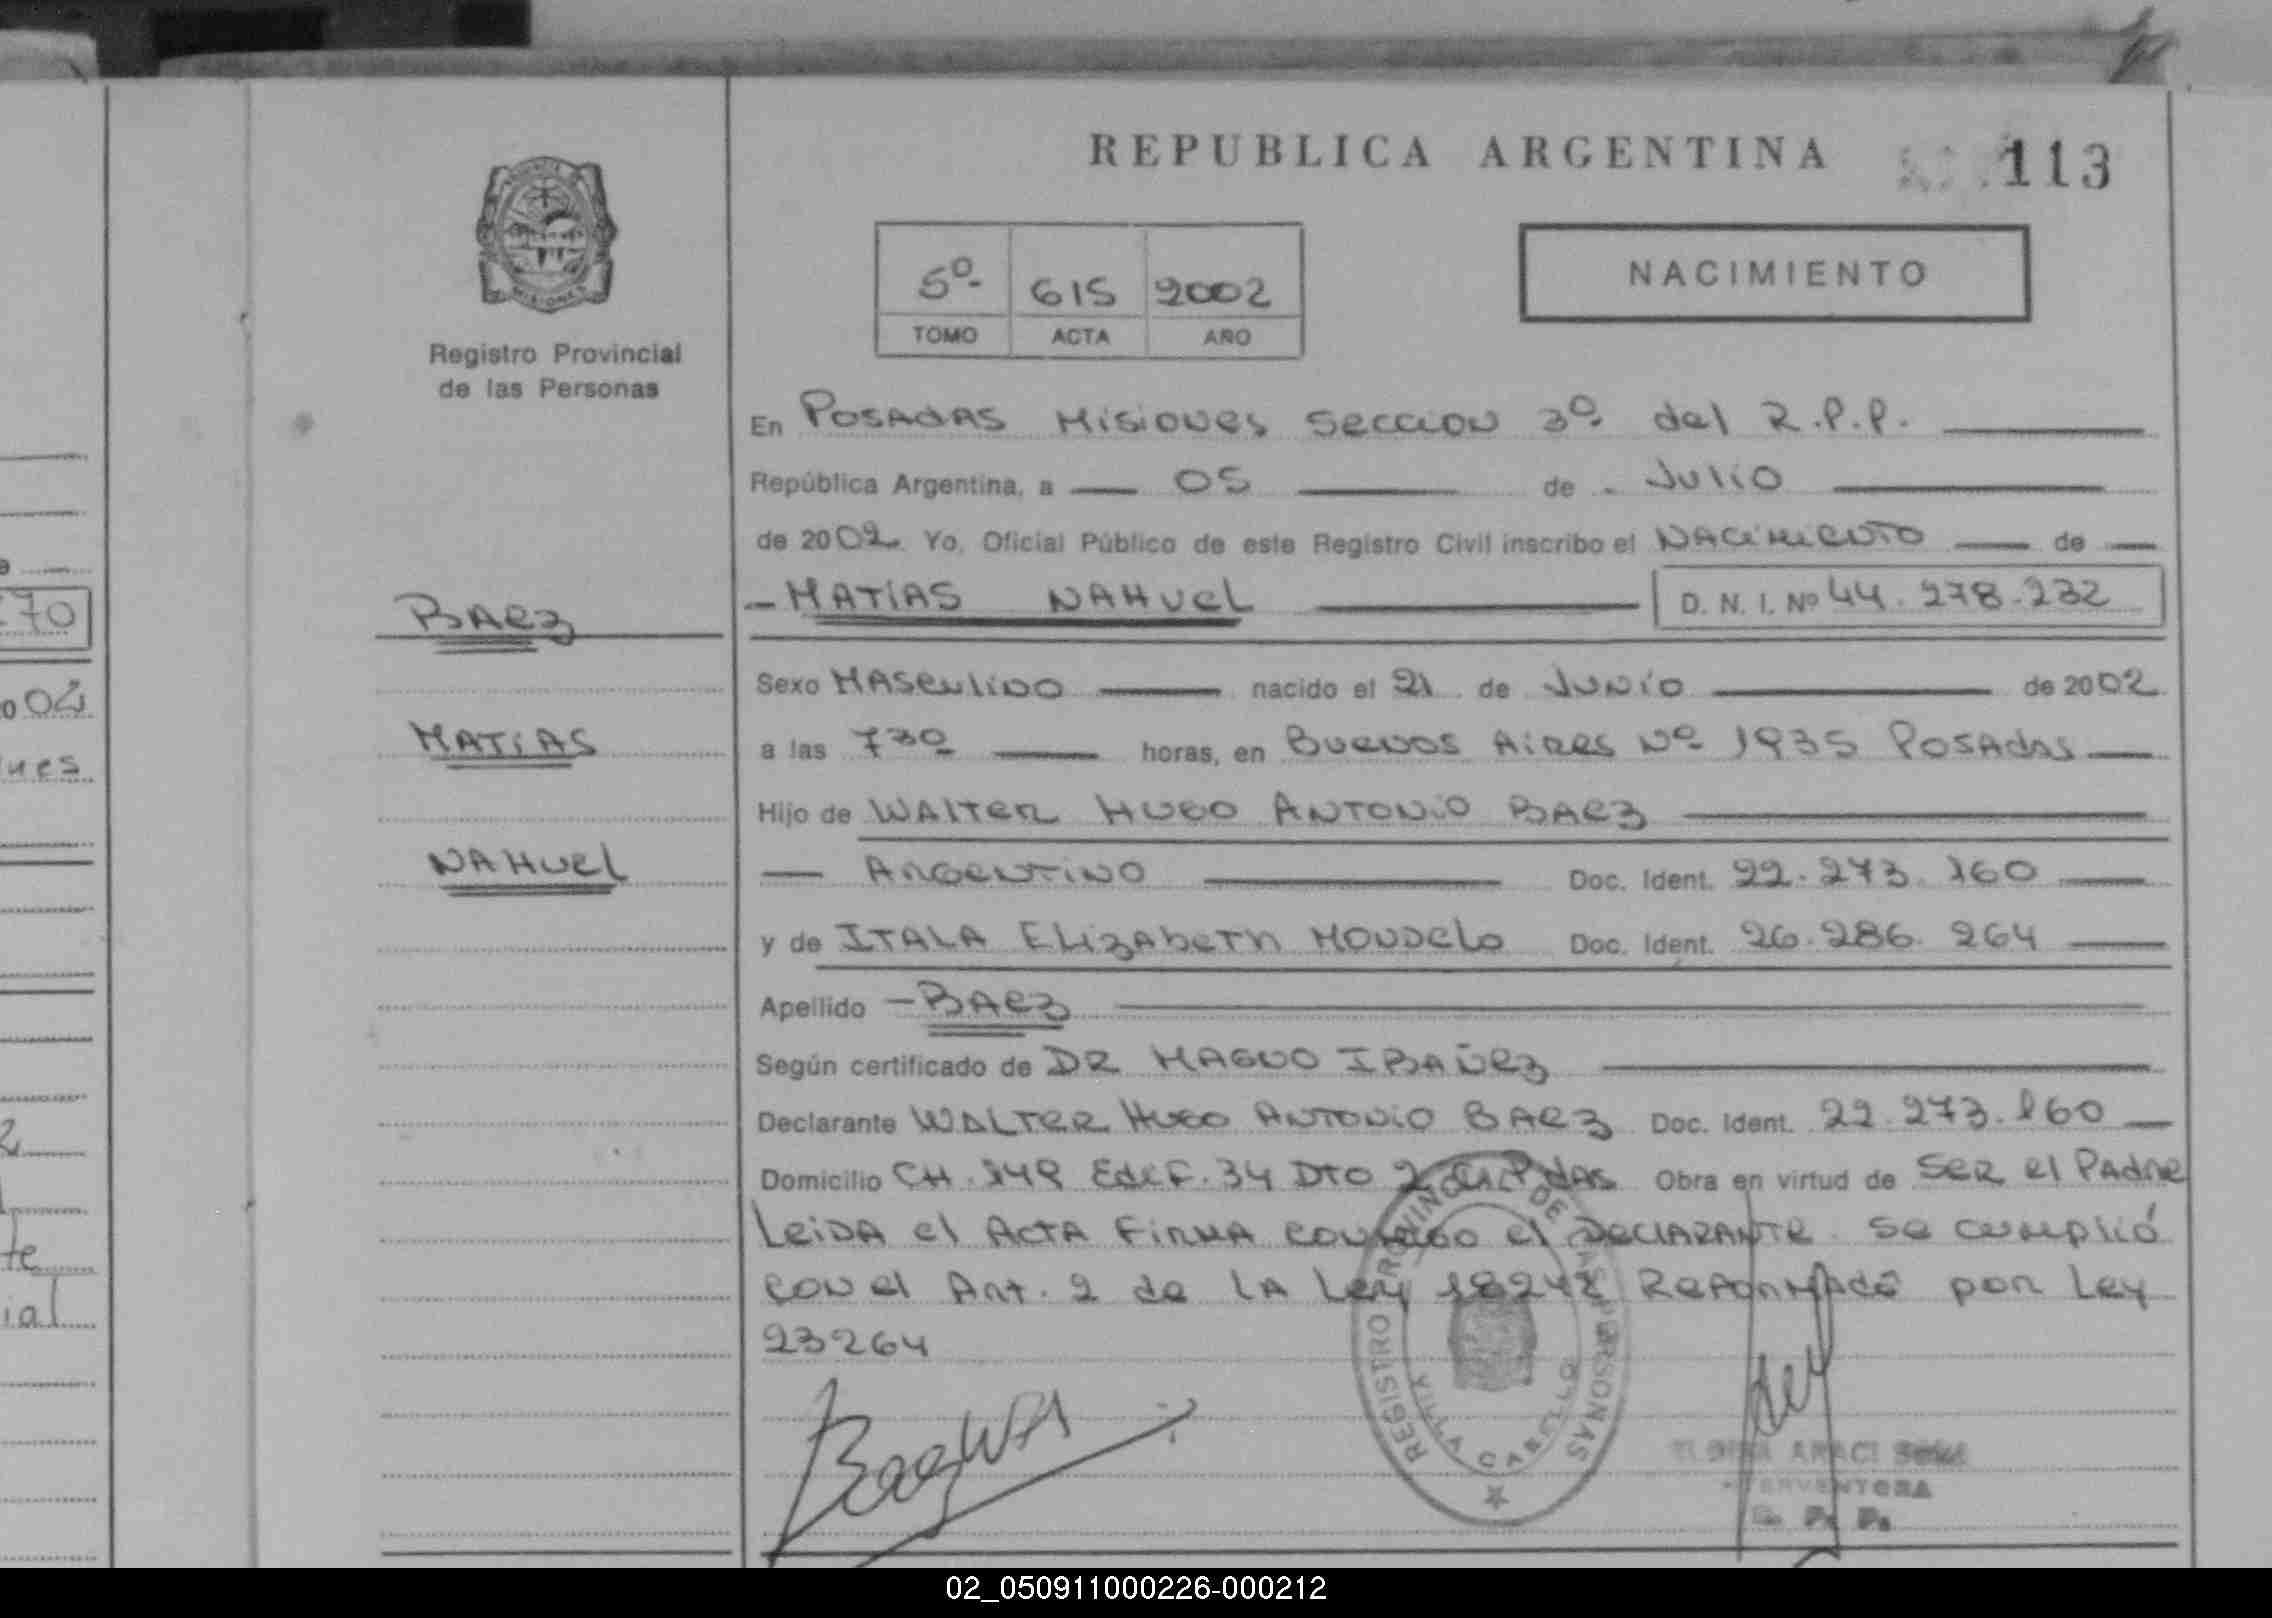 REPUBLICA ARGENTINA
113
MISIONES
Registro Provincial
de las Personas
5º 615 2002
TOMO ACTA AÑO
NACIMIENTO
En POSADAS Misiones Seccion 3º del R.P.P.
República Argentina, a 05 de Julio
de 2002. Yo, Oficial Público de este Registro Civil inscribo el NACimiento de
MATIAS NAHUEL D. N. I. Nº 44.278.232
BAez
Sexo MASculino nacido el 21 de JUNIO de 2002
MATIAS
a las 730 horas, en Buenos Aires Nº 1935 POSAdas
Hijo de WAlter HUGO ANTONIO BAez
NAHUEL
ARGENTINO Doc. Ident. 22.273.160
y de ITALA ElizabeTh MONDelo Doc. Ident. 26.286.264
Apellido BAez
Según certificado de DR MAGNO IBAÑez
Declarante WALTER HUGO ANTONIO BAez Doc. Ident. 22.273.160
Domicilio CH.149 Edif.34 DTO 2 Obra en virtud de SER el PAdre
LeiDA el ActA FirmA conmigo el DeclARANTE. Se cumplió
con el Art. 2 de LA Ley Reformado por Ley
23264
REGISTRO PROVINCIAL DE LAS PERSONAS
VILLA CABELLO
ARACI
R. P. P.
70
04
nes
te
ial
02_050911000226-000212